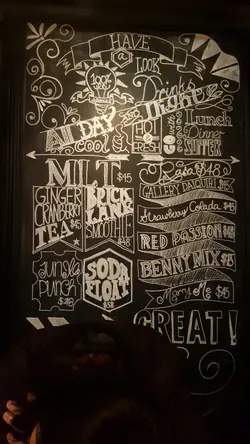 HAVE
a
LOOK
100%
Drinks
ALL DAY
Night
COOL
HOT
FRESH
Lunch
Dinner
SUPPER
MILT $45
GINGER
CRANBERRY
TEA $45
BRICK
LANE
SMOOTHIE
$48
Jungle
Punch
$48
SODA
FLOAT
$58
Rosa $48
GALLERY DAIQUIRI $45
Strawberry Colada $45
RED PASSION $48
BENNY MIX $45
Marry Me $45
GREAT!